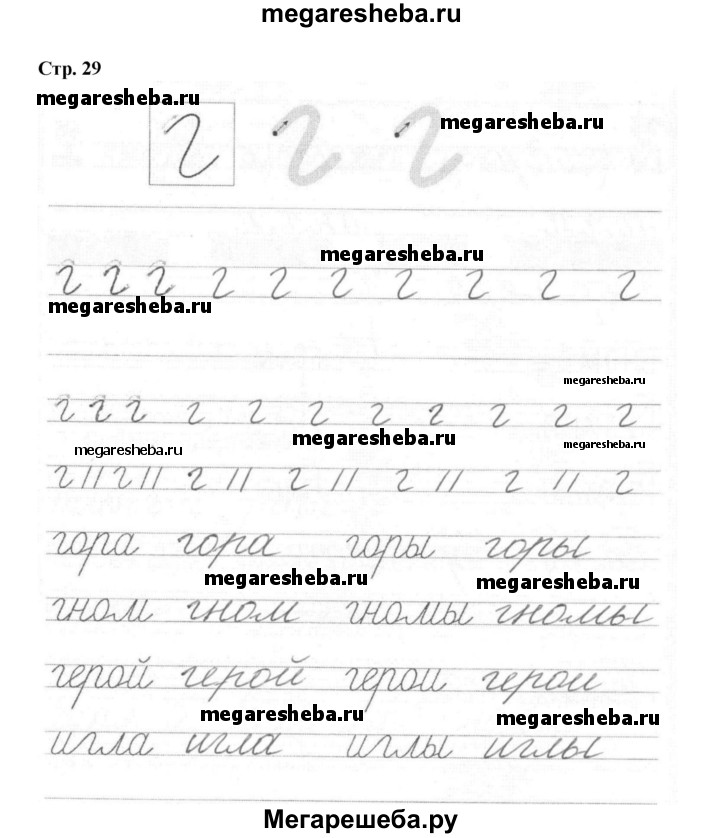 megaresheba.ru
Стр. 29
megaresheba.ru
г г г megaresheba.ru
megaresheba.ru
г г г г г г г г г г г
megaresheba.ru
megaresheba.ru
г г г г г г г г г г г
megaresheba.ru megaresheba.ru
megaresheba.ru
г // г // г // г // г // г // г
гора гора горы горы
megaresheba.ru megaresheba.ru
гном гном гномы гномы
герой герой герои герои
megaresheba.ru megaresheba.ru
игла игла иглы иглы
Мегарешеба.ру